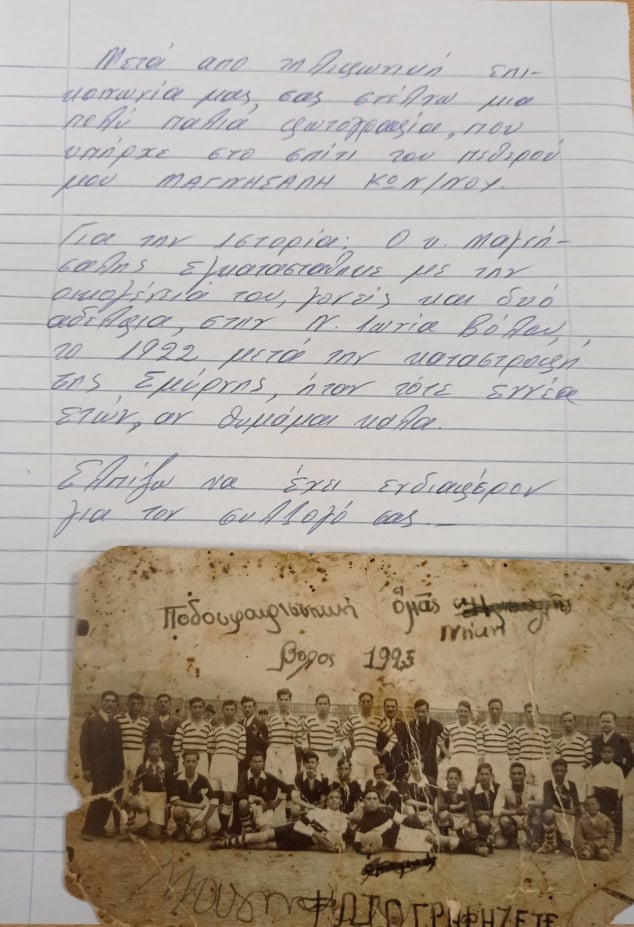 Μετά από τηλεφωνική επι-
κοινωνία μας, σας στέλνω μια
πολύ παλιά φωτογραφία, που
υπήρχε στο σπίτι του πεθερού
μου ΜΑΓΝΗΣΑΛΗ ΚΩΝ/ΝΟΥ.
Για την ιστορία: Ο κ. Μαγνη-
σαλης εγκαταστάθηκε με την
οικογένειά του, γονείς και δυό
αδέλφια, στην Ν. Ιωνία Βόλου,
το 1922 μετά την καταστροφή
της Σμύρνης, ήταν τότε εννέα
ετών, αν θυμάμαι καλα.
Ελπίζω να έχει ενδιαφέρον
για τον συλλογό σας.
Ποδοσφαιρισστική ὁμᾶς
Νίκη
Βολος 1925